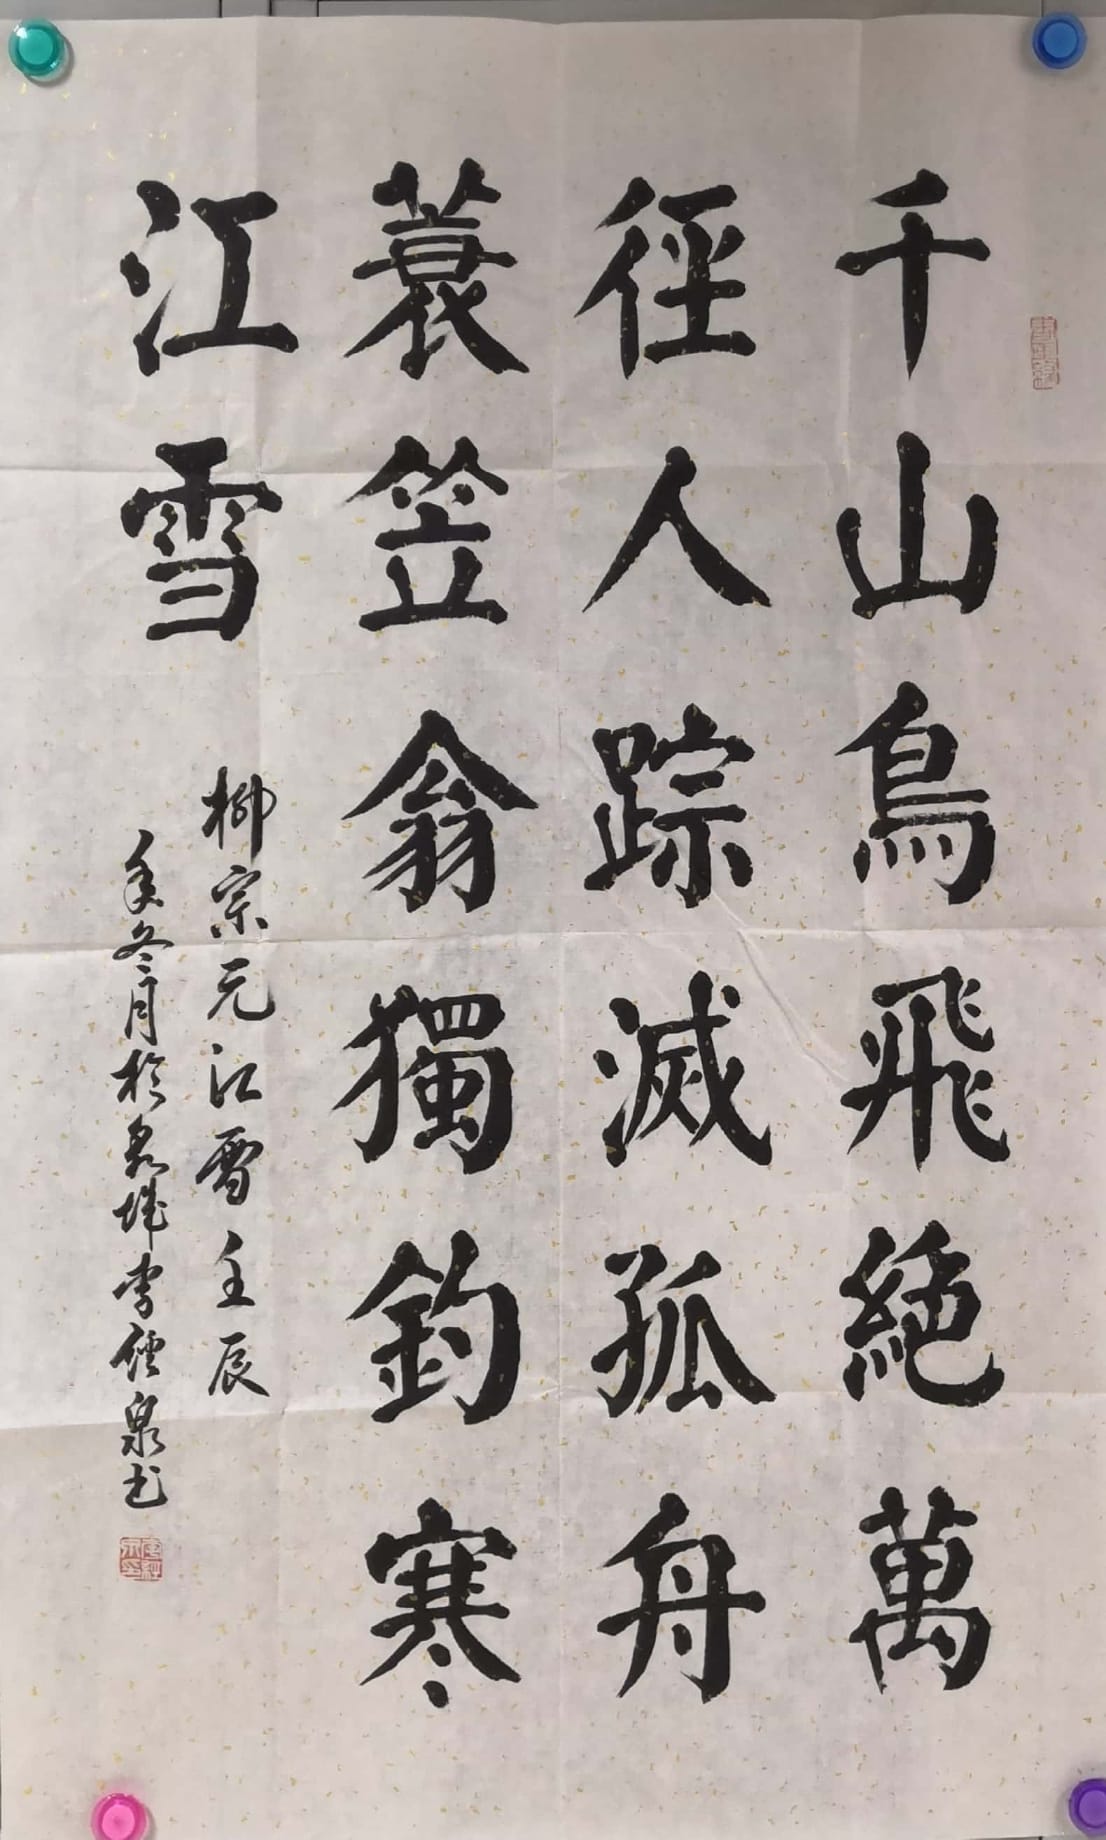 千山鳥飛絕萬
徑人踪滅孤舟
蓑笠翁獨釣寒
江雪
柳宗元江雪壬辰
年冬月於泉城李泉书